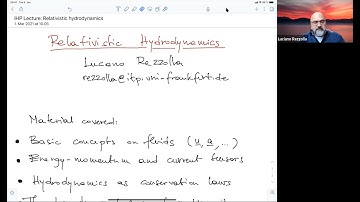 IHP Lecture: Relativistic hydrodynamics
1. Mar 2021 at 10:05
Relativistic Hydrodynamics
Luciano Rezzolla
rezzolla@itp.uni-frankfurt.de
Material covered:
• Basic concepts on fluids (u, a, ...)
• Energy-momentum and current tensors
• Hydrodynamics as conservation laws
Luciano Rezzolla